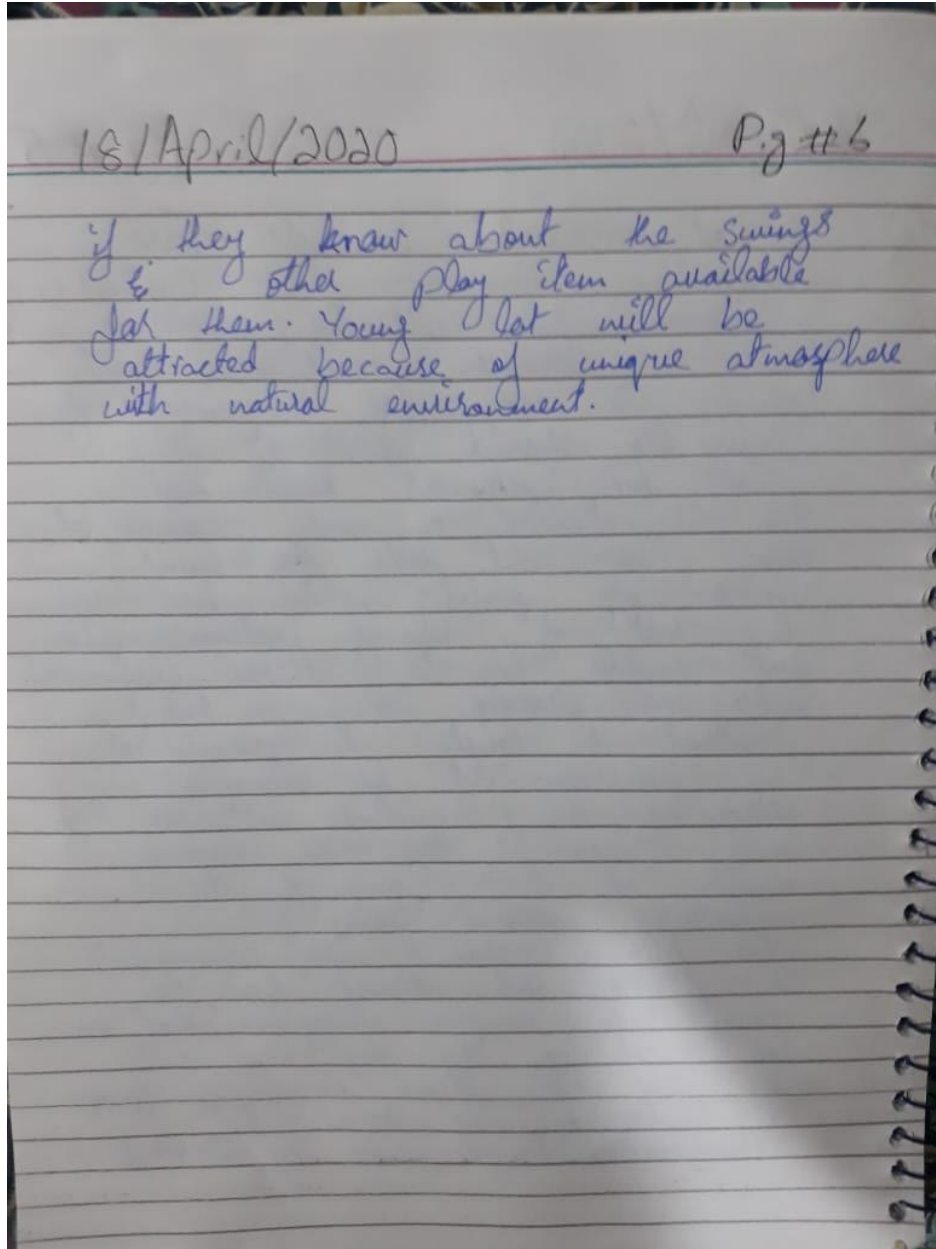 18/April/2020 P.g #6
if they know about the swings
& other play item available
for them. Young lot will be
attracted because of unique atmosphere
with natural environment.